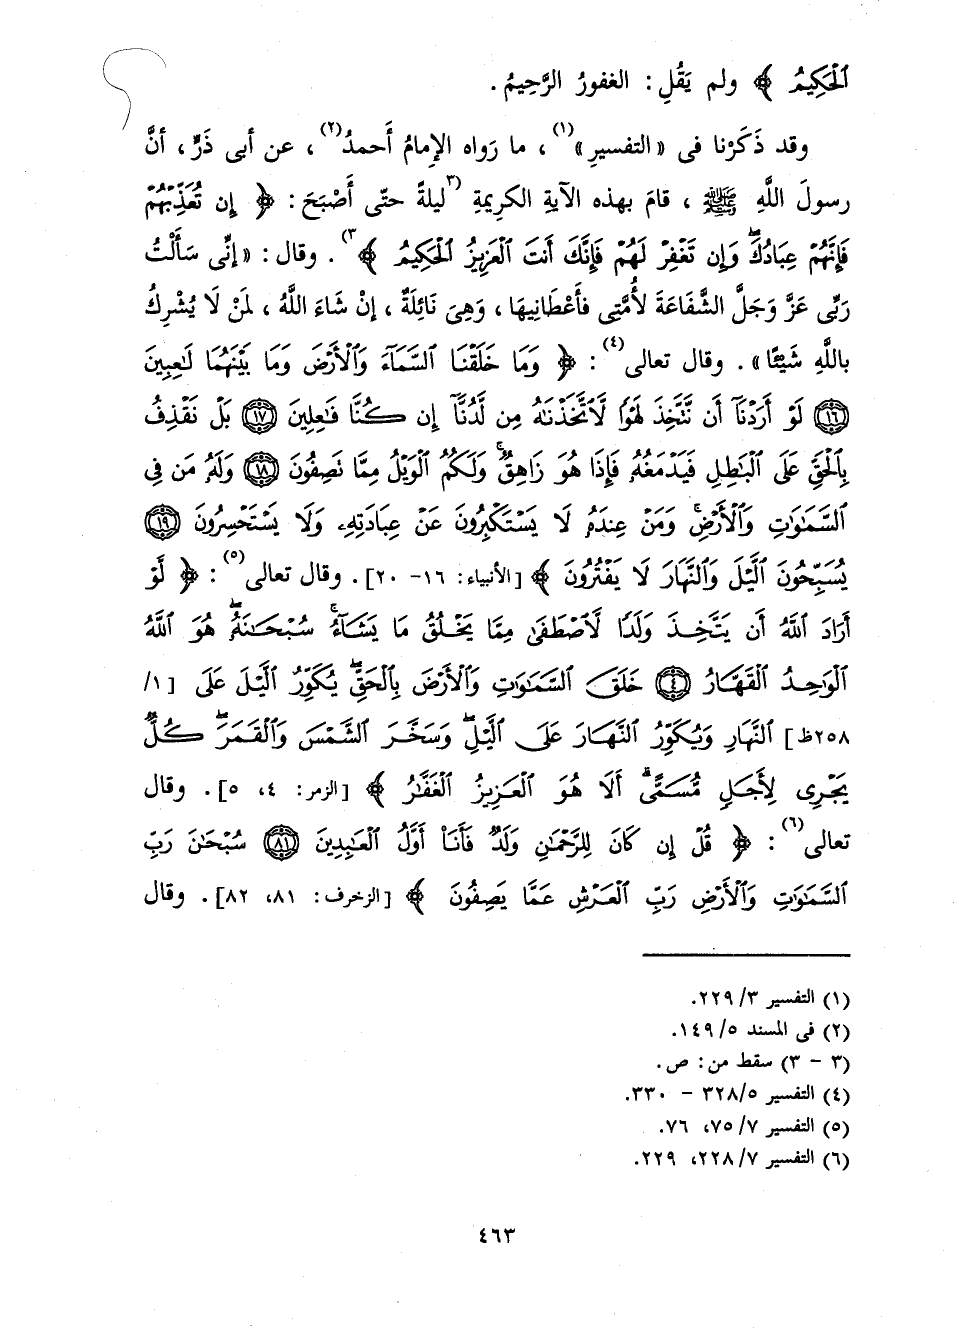 ٱلْحَكِيمُ ﴾ ولم يَقُلِ : الغفورُ الرَّحِيمُ .
وقد ذَكَرْنا فى « التفسيرِ »(١) ، ما رَواه الإمامُ أحمدُ(٢) ، عن أبى ذَرٍّ ، أنَّ
رسولَ اللَّهِ ﷺ ، قامَ بهذه الآيةِ الكريمةِ (٣ليلةً حتّى أَصْبَحَ : ﴿ إِن تُعَذِّبْهُمْ
فَإِنَّهُمْ عِبَادُكَۖ وَإِن تَغْفِرْ لَهُمْ فَإِنَّكَ أَنتَ ٱلْعَزِيزُ ٱلْحَكِيمُ ﴾٣) . وقال : « إنِّى سَأَلْتُ
رَبِّى عَزَّ وَجَلَّ الشَّفَاعَةَ لأُمَّتِى فأَعْطَانِيهَا ، وَهِىَ نَائِلَةٌ ، إنْ شَاءَ اللَّهُ ، لمَنْ لَا يُشْرِكُ
باللَّهِ شَيْئًا » . وقال تعالى(٤) : ﴿ وَمَا خَلَقْنَا ٱلسَّمَآءَ وَٱلْأَرْضَ وَمَا بَيْنَهُمَا لَٰعِبِينَ
﴿١٦﴾ لَوْ أَرَدْنَآ أَن نَّتَّخِذَ لَهْوًا لَّٱتَّخَذْنَٰهُ مِن لَّدُنَّآ إِن كُنَّا فَٰعِلِينَ ﴿١٧﴾ بَلْ نَقْذِفُ
بِٱلْحَقِّ عَلَى ٱلْبَٰطِلِ فَيَدْمَغُهُۥ فَإِذَا هُوَ زَاهِقٌۚ وَلَكُمُ ٱلْوَيْلُ مِمَّا تَصِفُونَ ﴿١٨﴾ وَلَهُۥ مَن فِى
ٱلسَّمَٰوَٰتِ وَٱلْأَرْضِۚ وَمَنْ عِندَهُۥ لَا يَسْتَكْبِرُونَ عَنْ عِبَادَتِهِۦ وَلَا يَسْتَحْسِرُونَ ﴿١٩﴾
يُسَبِّحُونَ ٱلَّيْلَ وَٱلنَّهَارَ لَا يَفْتُرُونَ ﴾ [الأنبياء: ١٦- ٢٠] . وقال تعالى(٥) : ﴿ لَّوْ
أَرَادَ ٱللَّهُ أَن يَتَّخِذَ وَلَدًا لَّٱصْطَفَىٰ مِمَّا يَخْلُقُ مَا يَشَآءُۚ سُبْحَٰنَهُۥۖ هُوَ ٱللَّهُ
ٱلْوَٰحِدُ ٱلْقَهَّارُ ﴿٤﴾ خَلَقَ ٱلسَّمَٰوَٰتِ وَٱلْأَرْضَ بِٱلْحَقِّۖ يُكَوِّرُ ٱلَّيْلَ عَلَى [١/
٢٥٨ظ] ٱلنَّهَارِ وَيُكَوِّرُ ٱلنَّهَارَ عَلَى ٱلَّيْلِۖ وَسَخَّرَ ٱلشَّمْسَ وَٱلْقَمَرَۖ كُلٌّ
يَجْرِى لِأَجَلٍ مُّسَمًّىۗ أَلَا هُوَ ٱلْعَزِيزُ ٱلْغَفَّٰرُ ﴾ [الزمر: ٤، ٥] . وقال
تعالى(٦) : ﴿ قُلْ إِن كَانَ لِلرَّحْمَٰنِ وَلَدٌ فَأَنَا۠ أَوَّلُ ٱلْعَٰبِدِينَ ﴿٨١﴾ سُبْحَٰنَ رَبِّ
ٱلسَّمَٰوَٰتِ وَٱلْأَرْضِ رَبِّ ٱلْعَرْشِ عَمَّا يَصِفُونَ ﴾ [الزخرف: ٨١، ٨٢] . وقال
(١) التفسير ٢٢٩/٣.
(٢) فى المسند ١٤٩/٥.
(٣ - ٣) سقط من: ص.
(٤) التفسير ٣٢٨/٥ - ٣٣٠.
(٥) التفسير ٧٥/٧، ٧٦.
(٦) التفسير ٢٢٨/٧، ٢٢٩.
٤٦٣